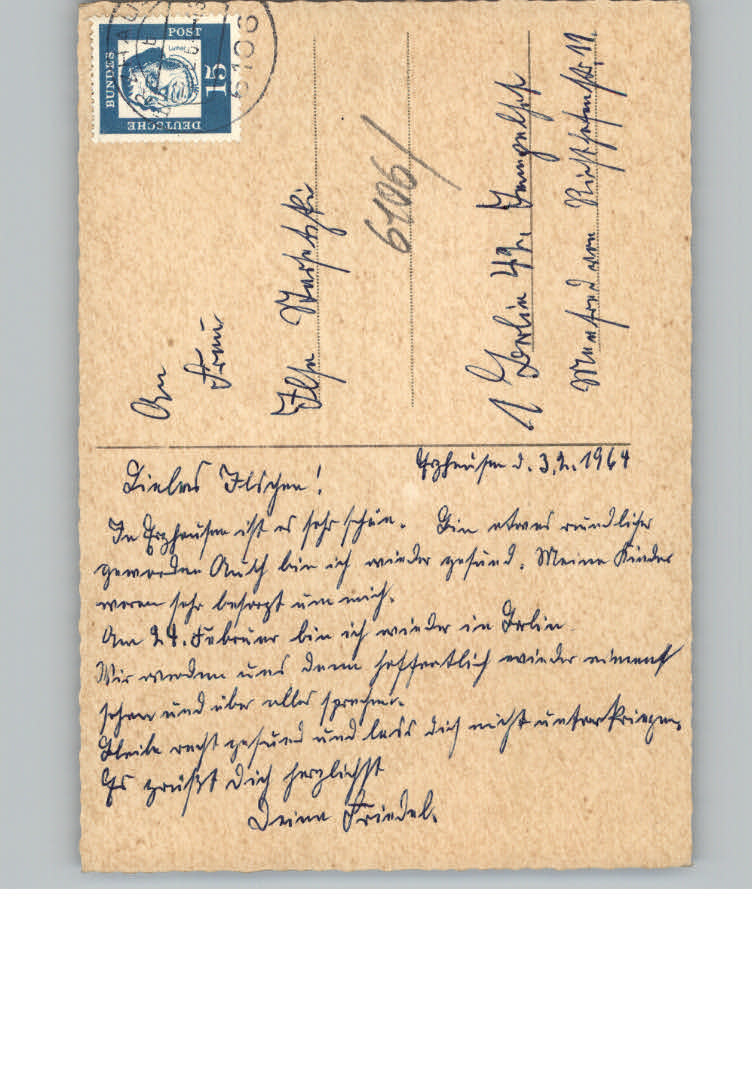 DEUTSCHE
BUNDES
POST
15
Luther
6106
6106/
An
Frau
Ilse
1 Berlin 42, Tempelhof
Manfred von Richthofenstr. 11.
Erzhausen d. 3.2.1964
Liebes Ilschen!
In Erzhausen ist es sehr schön. Bin etwas rundlicher
geworden Auch bin ich wieder gesund. Meine Kinder
waren sehr besorgt um mich.
Am 24. Februar bin ich wieder in Berlin.
Wir werden uns dann hoffentlich wieder einmal
sehen und über alles sprechen.
Bleibe recht gesund und lass dich nicht unterkriegen.
Es grüßt Dich herzlichst
Deine Friedel.